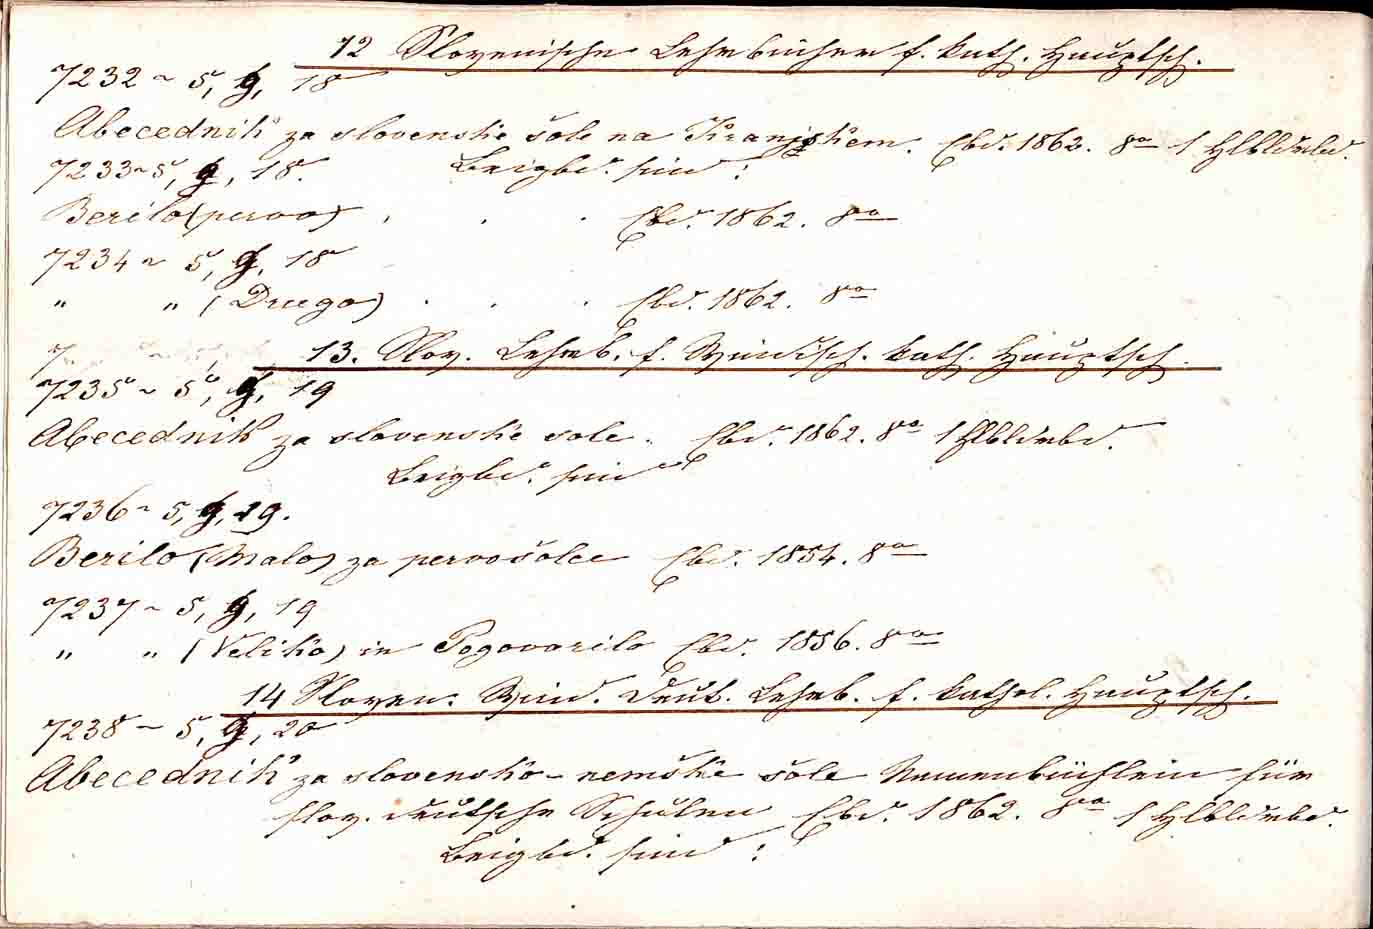 12 Slovenische Lehrbücher f. kath. Hauptsch.
7232 ~ 5, g, 18
Abecednik za slovenske šole na Kranjskem. Ebd. 1862. 8° 1 Hlbldrbd.
7233 ~ 5, g, 18. Beigbd. sind:
Berilo (pervo) . . . Ebd. 1862. 8°
7234 ~ 5, g, 18
" " (Drugo) . . . Ebd. 1862. 8°
13. Slov. Lehrb. f. Windisch. kath. Hauptsch.
7235 ~ 5, g, 19
Abecednik za slovenske sole. Ebd. 1862. 8° 1 Hlbldrbd.
Beigbd. sind
7236 ~ 5, g, 19.
Berilo (Malo) za pervošolce Ebd. 1854. 8°
7237 ~ 5, g, 19
" " (Veliko) in Pogovorilo Ebd. 1856. 8°
14 Sloven. Wind. Deut. Lehrb. f. kathol. Hauptsch.
7238 ~ 5, g, 20
Abecednik za slovensko-nemške šole Namenbüchlein für
slov. deutsche Schulen Ebd. 1862. 8° 1 Hlbldrbd.
Beigbd. sind: